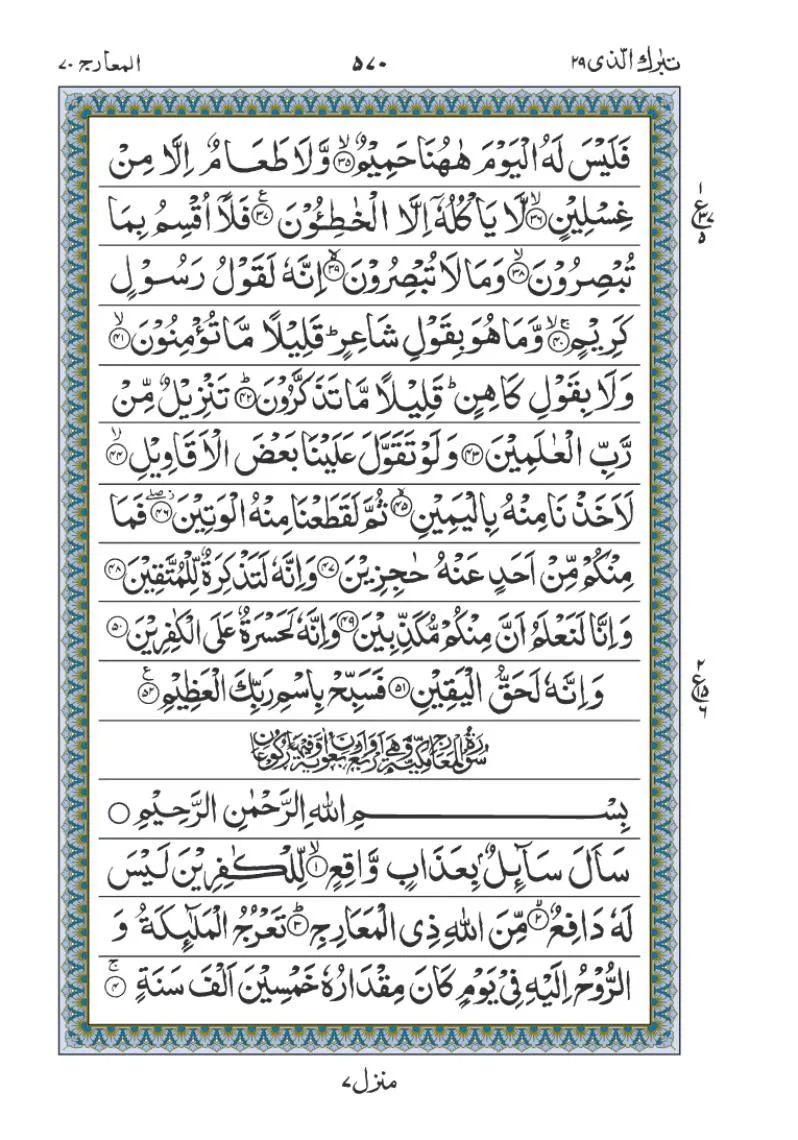 تبٰرك الّذی ۲۹
۵۷۰
المعارج ۷۰
فَلَيْسَ لَهُ الْيَوْمَ هٰهُنَا حَمِيْمٌ ۙ‏﴿۳۵﴾ وَّلَا طَعَامٌ اِلَّا مِنْ
غِسْلِيْنٍ ۙ‏﴿۳۶﴾ لَّا يَاْكُلُهٗۤ اِلَّا الْخٰطِـُٔوْنَ ‏﴿۳۷﴾ ع فَلَاۤ اُقْسِمُ بِمَا
۱
ع ۳۷
۵
تُبْصِرُوْنَ ۙ‏﴿۳۸﴾ وَمَا لَا تُبْصِرُوْنَ ۙ‏﴿۳۹﴾ اِنَّهٗ لَقَوْلُ رَسُوْلٍ
كَرِيْمٍ ۚۙ‏﴿۴۰﴾ وَّمَا هُوَ بِقَوْلِ شَاعِرٍ ؕ قَلِيْلًا مَّا تُؤْمِنُوْنَ ۙ‏﴿۴۱﴾
وَلَا بِقَوْلِ كَاهِنٍ ؕ قَلِيْلًا مَّا تَذَكَّرُوْنَ ؕ‏﴿۴۲﴾ تَنْزِيْلٌ مِّنْ
رَّبِّ الْعٰلَمِيْنَ ‏﴿۴۳﴾ وَلَوْ تَقَوَّلَ عَلَيْنَا بَعْضَ الْاَقَاوِيْلِ ۙ‏﴿۴۴﴾
لَاَخَذْنَا مِنْهُ بِالْيَمِيْنِ ۙ‏﴿۴۵﴾ ثُمَّ لَقَطَعْنَا مِنْهُ الْوَتِيْنَ ۖ‏﴿۴۶﴾ فَمَا
مِنْكُمْ مِّنْ اَحَدٍ عَنْهُ حٰجِزِيْنَ ‏﴿۴۷﴾ وَاِنَّهٗ لَتَذْكِرَةٌ لِّلْمُتَّقِيْنَ ‏﴿۴۸﴾
وَاِنَّا لَنَعْلَمُ اَنَّ مِنْكُمْ مُّكَذِّبِيْنَ ‏﴿۴۹﴾ وَاِنَّهٗ لَحَسْرَةٌ عَلَى الْكٰفِرِيْنَ ‏﴿۵۰﴾
وَاِنَّهٗ لَحَقُّ الْيَقِيْنِ ‏﴿۵۱﴾ فَسَبِّحْ بِاسْمِ رَبِّكَ الْعَظِيْمِ ‏﴿۵۲﴾ ع
۲
ع ۱۵
۶
سُوْرَةُ الْمَعَارِجِ مَكِّيَّةٌ وَّهِيَ اَرْبَعٌ وَّاَرْبَعُوْنَ اٰيَةً وَّفِيْهَا رُكُوْعَانِ
بِسْمِ اللّٰهِ الرَّحْمٰنِ الرَّحِيْمِ ○
سَاَلَ سَآئِلٌۢ بِعَذَابٍ وَّاقِعٍ ۙ‏﴿۱﴾ لِّلْكٰفِرِيْنَ لَيْسَ
لَهٗ دَافِعٌ ۙ‏﴿۲﴾ مِّنَ اللّٰهِ ذِى الْمَعَارِجِ ؕ‏﴿۳﴾ تَعْرُجُ الْمَلٰٓئِكَةُ وَ
الرُّوْحُ اِلَيْهِ فِىْ يَوْمٍ كَانَ مِقْدَارُهٗ خَمْسِيْنَ اَلْفَ سَنَةٍ ۚ‏﴿۴﴾
منزل ۷